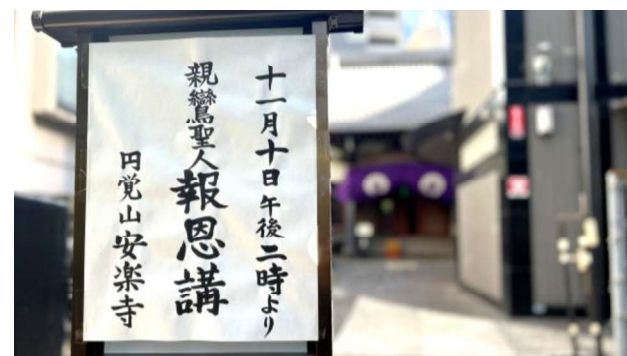 十一月十日午後二時より
親鸞聖人報恩講
円覚山安楽寺